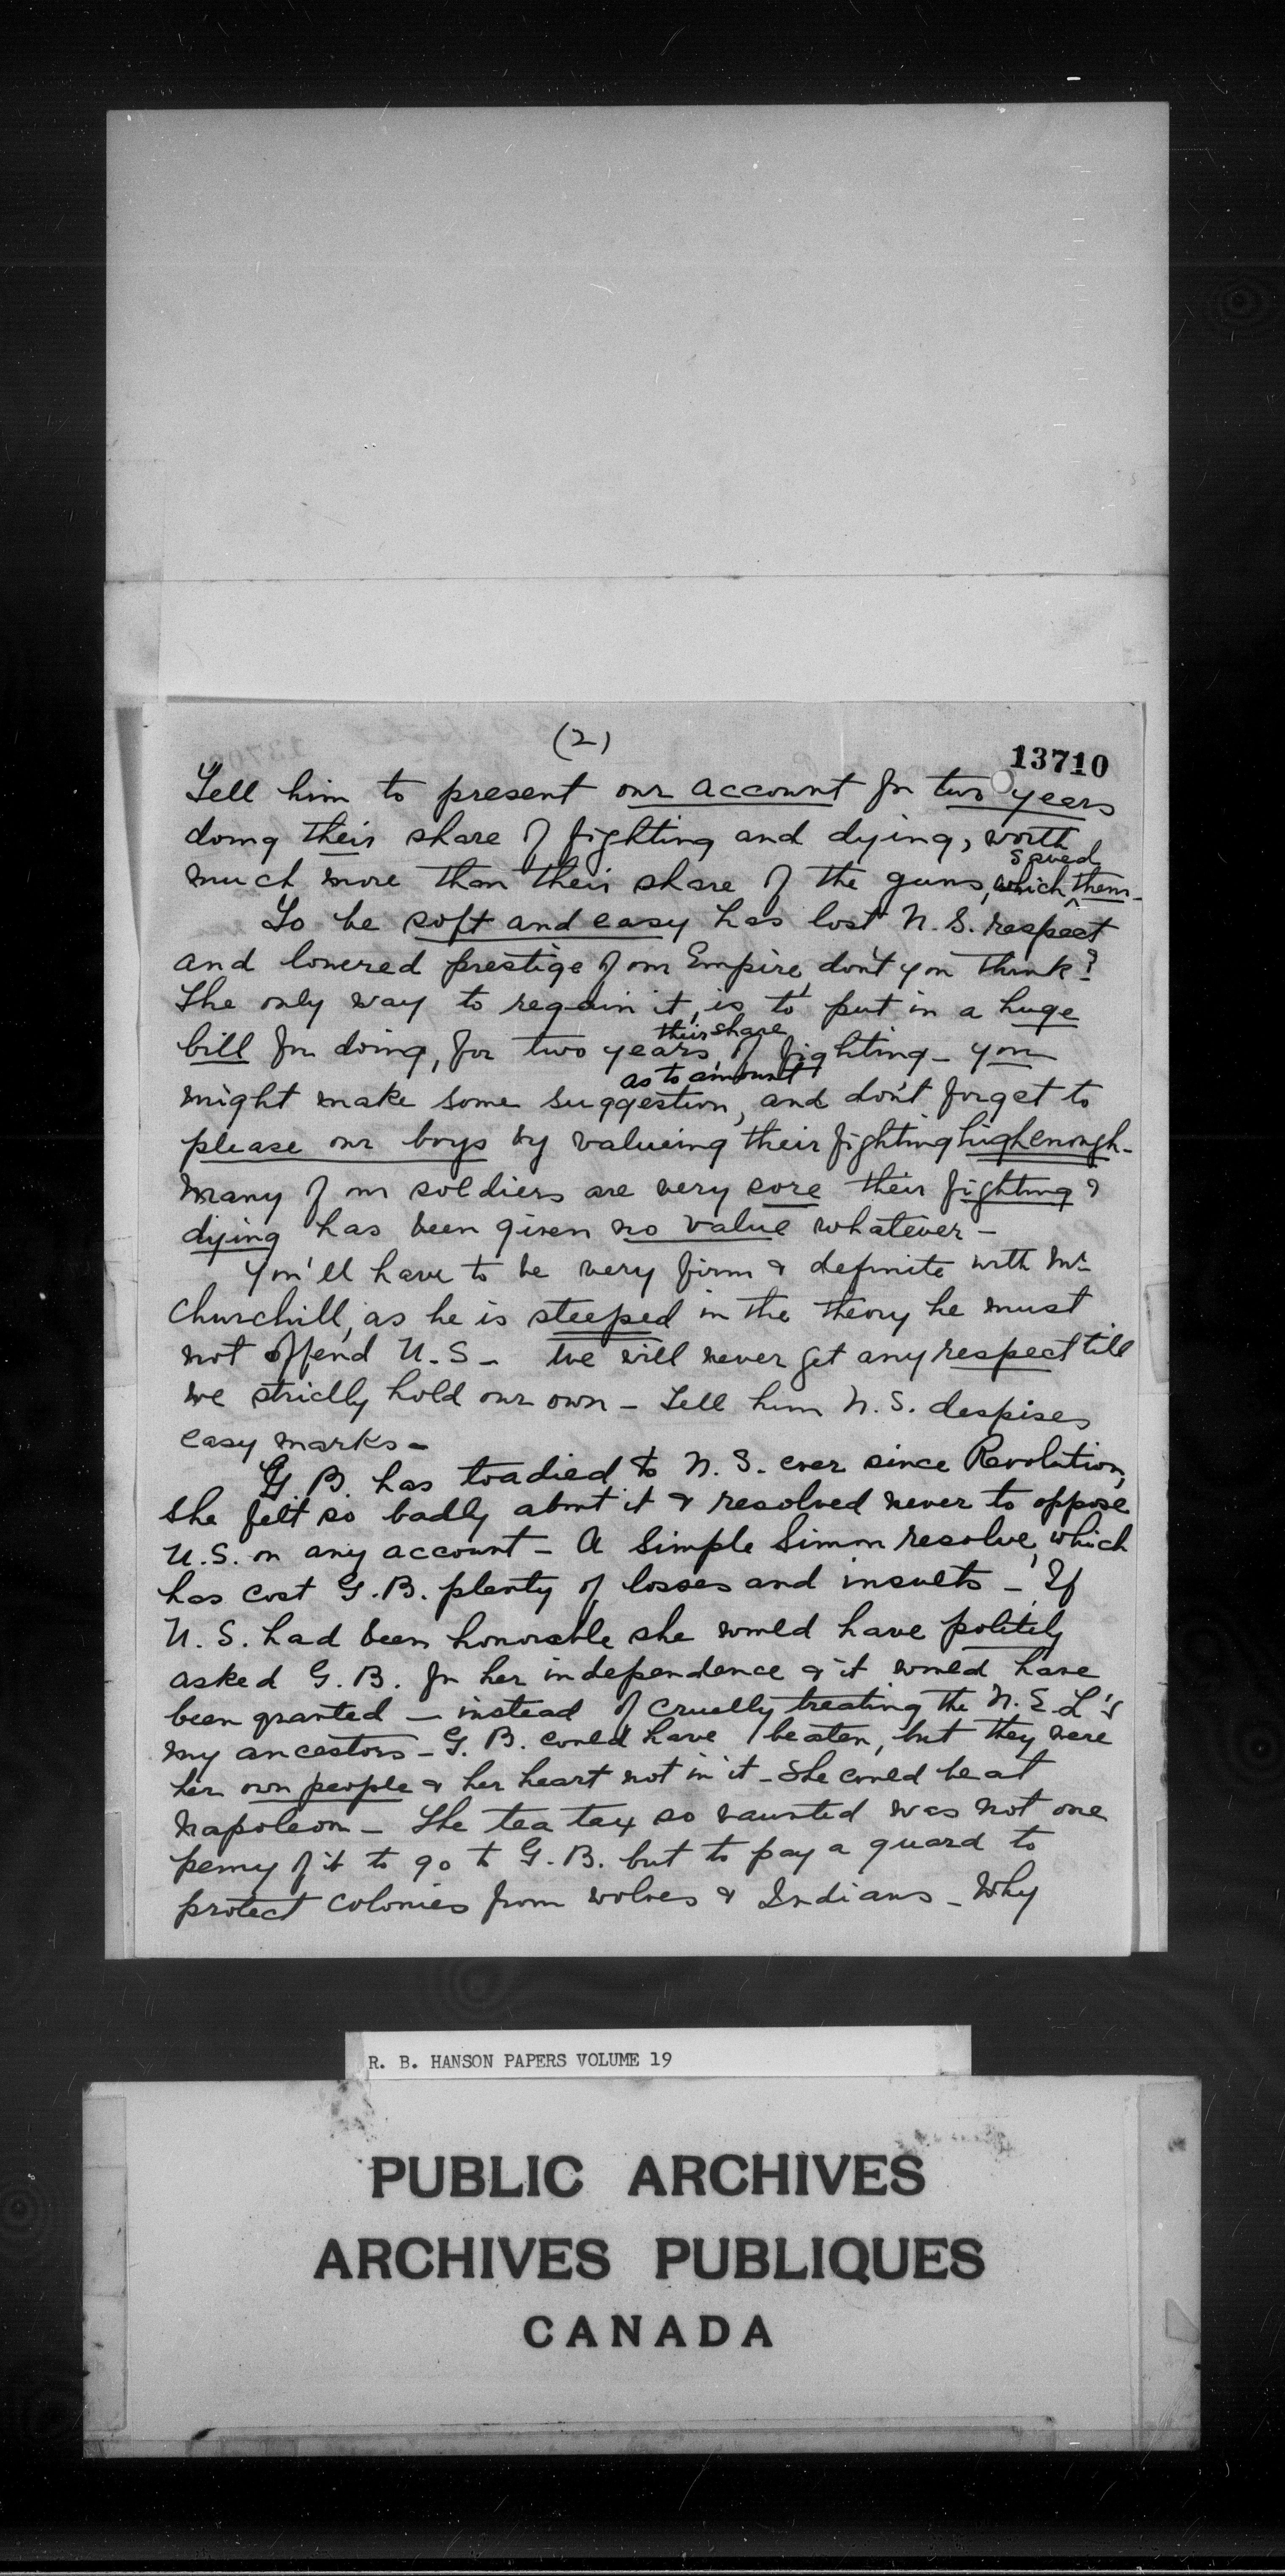 (2)
13710
Tell him to present our account for two years
doing their share of fighting and dying, worth
much more than their share of the guns, which saved them -
To be soft and easy has lost U.S. respect
and lowered prestige of our Empire, don't you think?
The only way to regain it, is to put in a huge
bill for doing, for two years, their share of fighting - you
might make some suggestion as to amount, and don't forget to
please our boys by valueing their fighting high enough -
Many of our soldiers are very sore their fighting &
dying has been given no value whatever -
You'll have to be very firm & definite with Mr.
Churchill, as he is steeped in the theory he must
not offend U.S. - We will never get any respect till
we strictly hold our own - Tell him U.S. despises
easy marks -
G.B. has toadied to U.S. ever since Revolution,
she felt so badly about it & resolved never to oppose
U.S. on any account - A Simple Simon resolve, which
has cost G.B. plenty of losses and insults - If
U.S. had been honorable she would have politely
asked G.B. for her independence & it would have
been granted - instead of cruelly treating the U.E.L's
my ancestors - G.B. could have beaten, but they were
her own people & her heart not in it - She could beat
Napoleon - The tea tax so vaunted was not one
penny of it to go to G.B. but to pay a guard to
protect colonies from wolves & Indians - Why
R. B. HANSON PAPERS VOLUME 19
PUBLIC ARCHIVES
ARCHIVES PUBLIQUES
CANADA